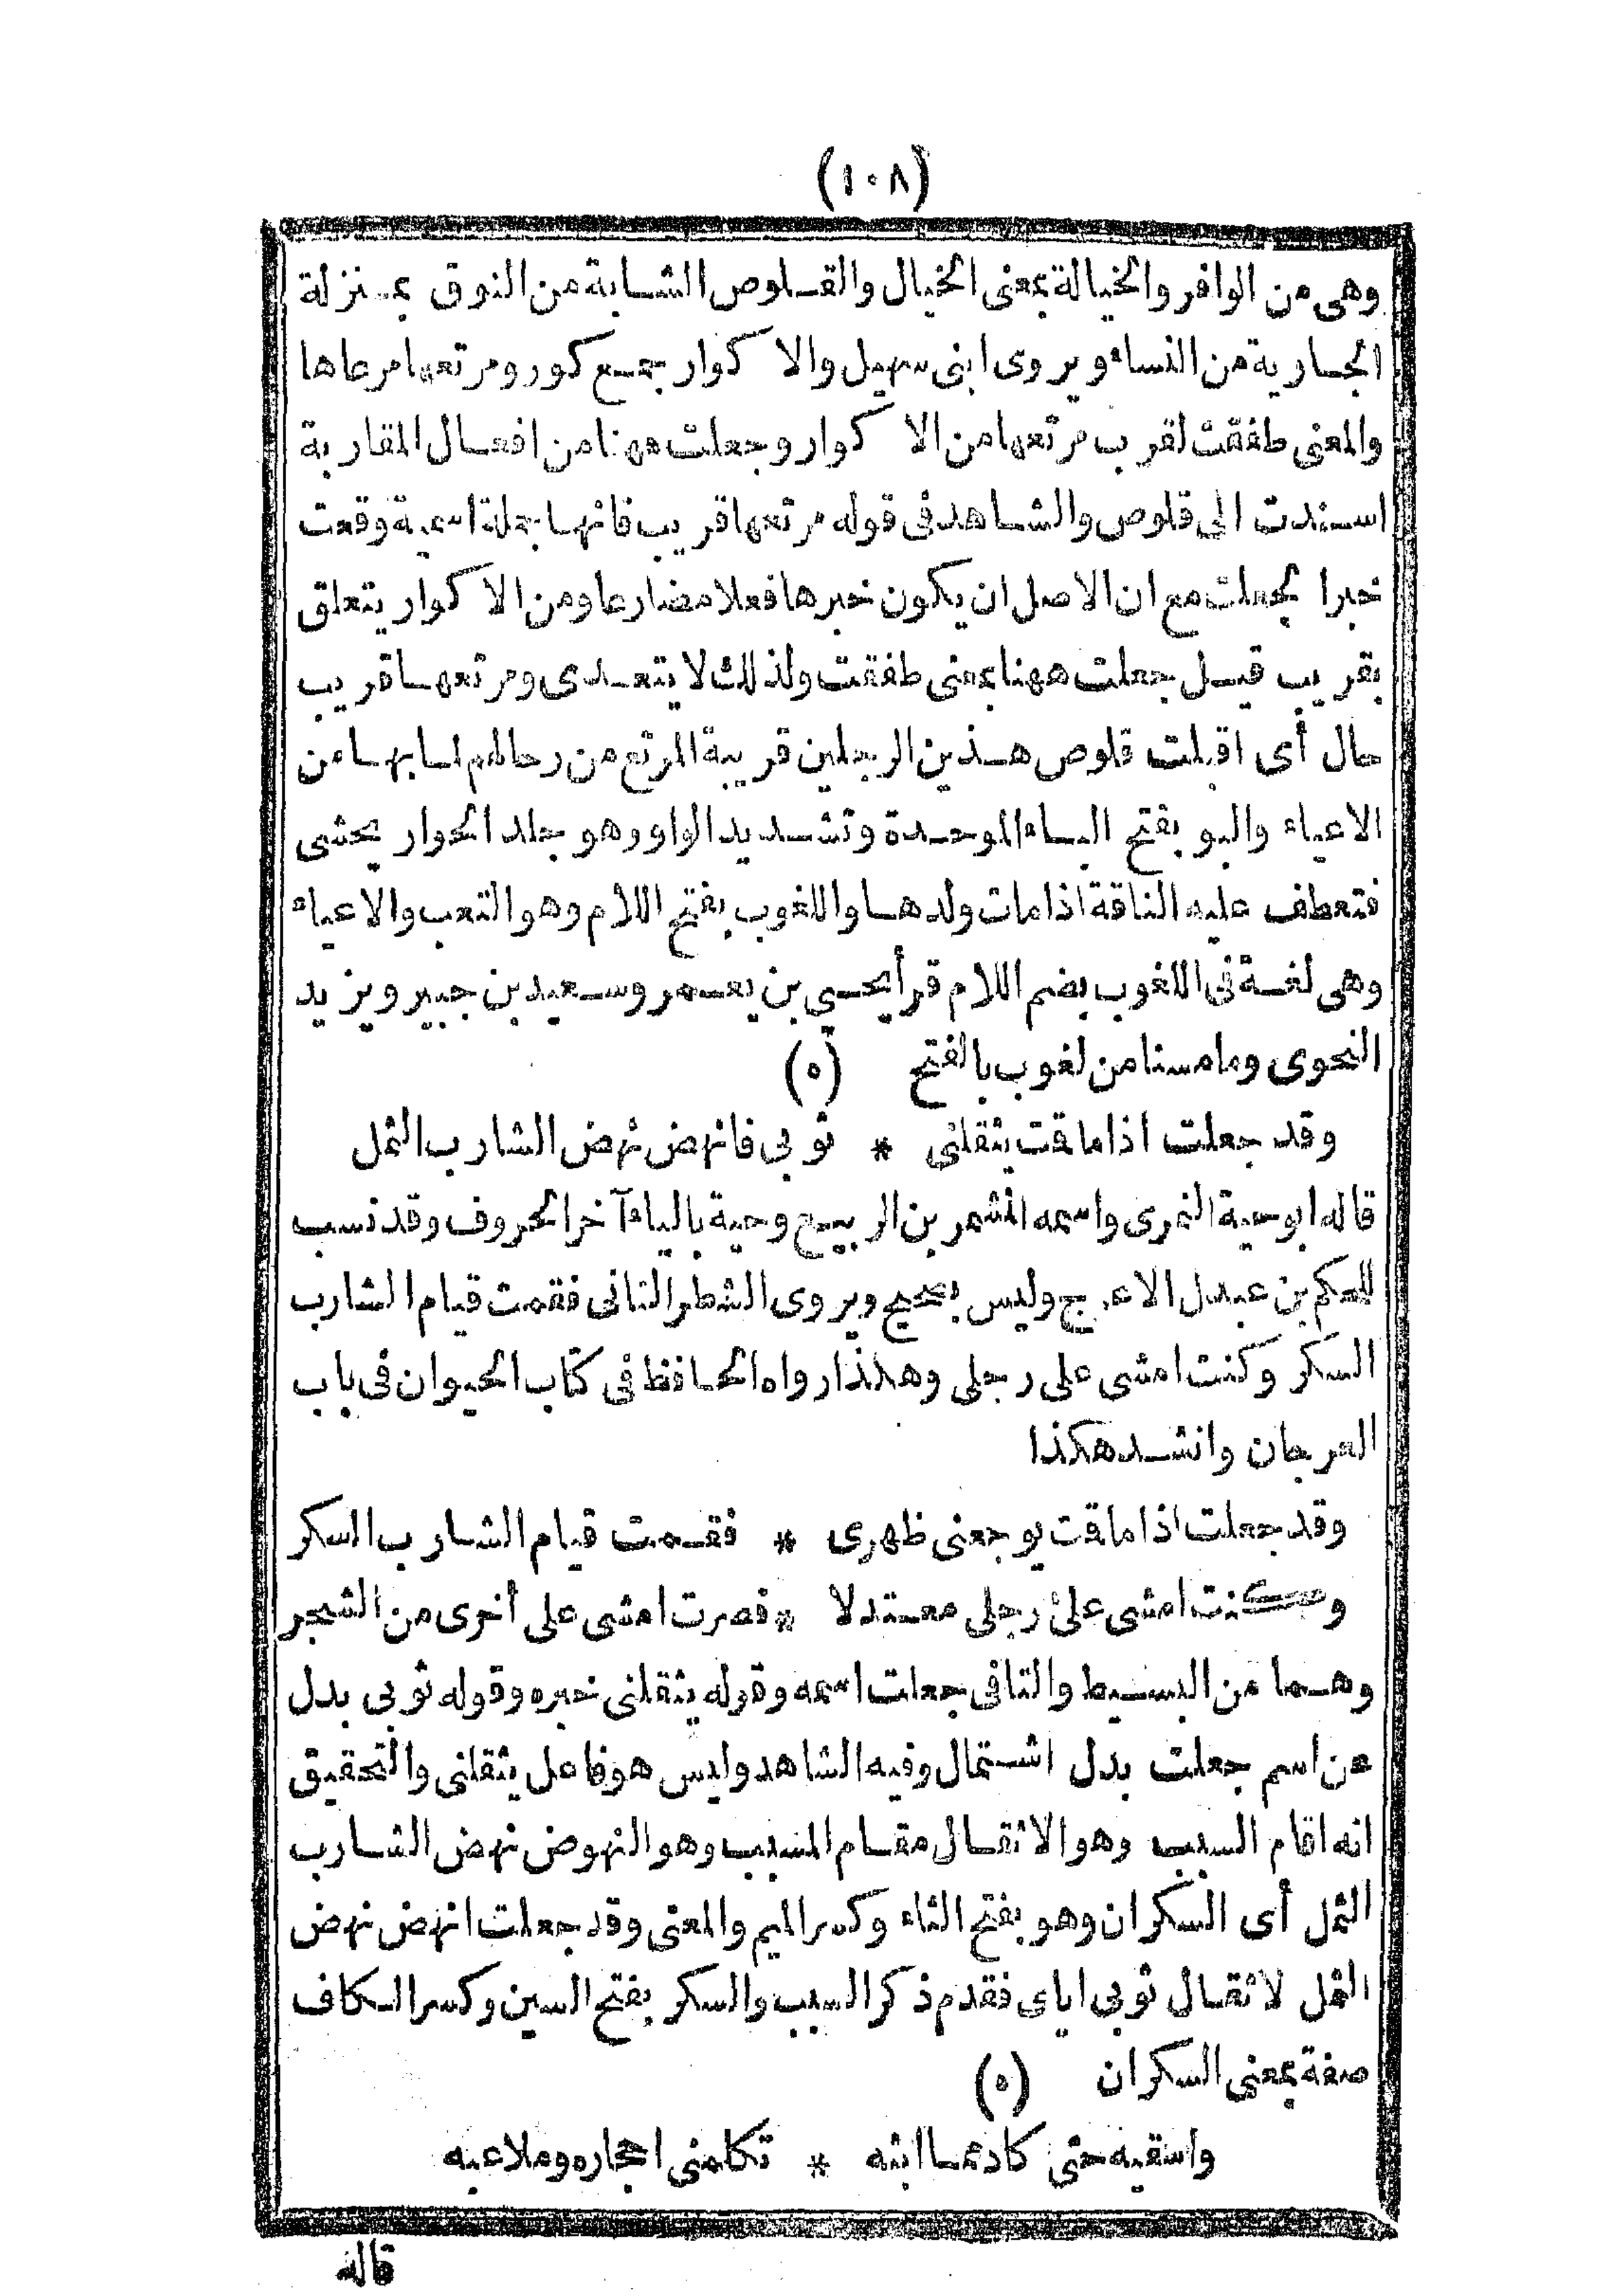 (١٠٨)
وهى من الوافر والخيالة بمعنى الخيال والقلوص الشابة من النوق بمنزلة
الجارية من النساء ويروى ابنى سهيل والاكوار جمع كور ومرتعها مرعاها
والمعنى طفقت لقرب مرتعها من الاكوار وجعلت ههنا من افعال المقاربة
اسندت الى قلوص والشاهد فى قوله مرتعها قريب فانها جملة اسمية وقعت
خبرا لجعلت مع ان الاصل ان يكون خبرها فعلا مضارعا ومن الاكوار يتعلق
بقريب قيل جعلت ههنا بمعنى طفقت ولذلك لا يتعدى ومرتعها قريب
حال أى اقبلت قلوص هذين الرجلين قريبة المرتع من رحالهم لما بها من
الاعياء والبو بفتح الباء الموحدة وتشديد الواو وهو جلد الحوار يحشى
فتعطف عليه الناقة اذا مات ولدها واللغوب بفتح اللام وهو التعب والاعياء
وهى لغة فى اللغوب بضم اللام قرأ يحيي بن يعمر وسعيد بن جبير ويزيد
النحوى وما مسنا من لغوب بالفتح (ه)
وقد جعلت اذا ما قمت يثقلنى * ثوبى فانهض نهض الشارب الثمل
قاله ابو حية النمرى واسمه المشمر بن الربيع وحية بالياء آخر الحروف وقد نسب
للحكم بن عبدل الاعرج وليس بصحيح ويروى الشطر الثانى فقمت قيام الشارب
السكر وكنت امشى على رجلى وهكذا رواه الحافظ فى كتاب الحيوان فى باب
العرجان وانشد هكذا
وقد جعلت اذا ما قمت يوجعنى ظهرى * فقمت قيام الشارب السكر
وكنت امشى على رجلى معتدلا * فصرت امشى على أخرى من الشجر
وهما من البسيط والتا فى جعلت اسمه وقوله يثقلنى خبره وقوله ثوبى بدل
من اسم جعلت بدل اشتمال وفيه الشاهد وليس هو فاعل يثقلنى والتحقيق
انه اقام السبب وهو الاثقال مقام المسبب وهو النهوض نهض الشارب
الثمل أى السكران وهو بفتح الثاء وكسر الميم والمعنى وقد جعلت انهض نهض
الثمل لاثقال ثوبى اياى فقدم ذكر السبب والسكر بفتح السين وكسر الكاف
صفة بمعنى السكران (ه)
واسقيه حتى كاد مما ابثه * تكلمنى احجاره وملاعبه
قاله